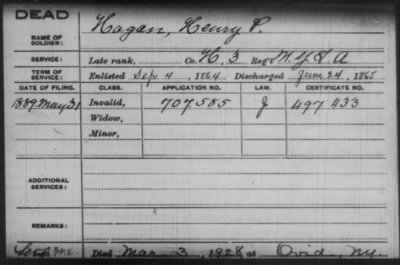 DEAD
NAME OF SOLDIER: Hagan, Henry P.
SERVICE: Late rank, Co. H, 3 Reg't N.Y.L.A
TERM OF SERVICE: Enlisted Sep. 4, 1864 Discharged June 24, 1865
DATE OF FILING. CLASS. APPLICATION NO. LAW. CERTIFICATE NO.
1889. May 31 Invalid, 707585 J 497 433
Widow,
Minor,
ADDITIONAL SERVICES:
REMARKS:
Died Mar 3, 1928 at Ovid, N.Y.